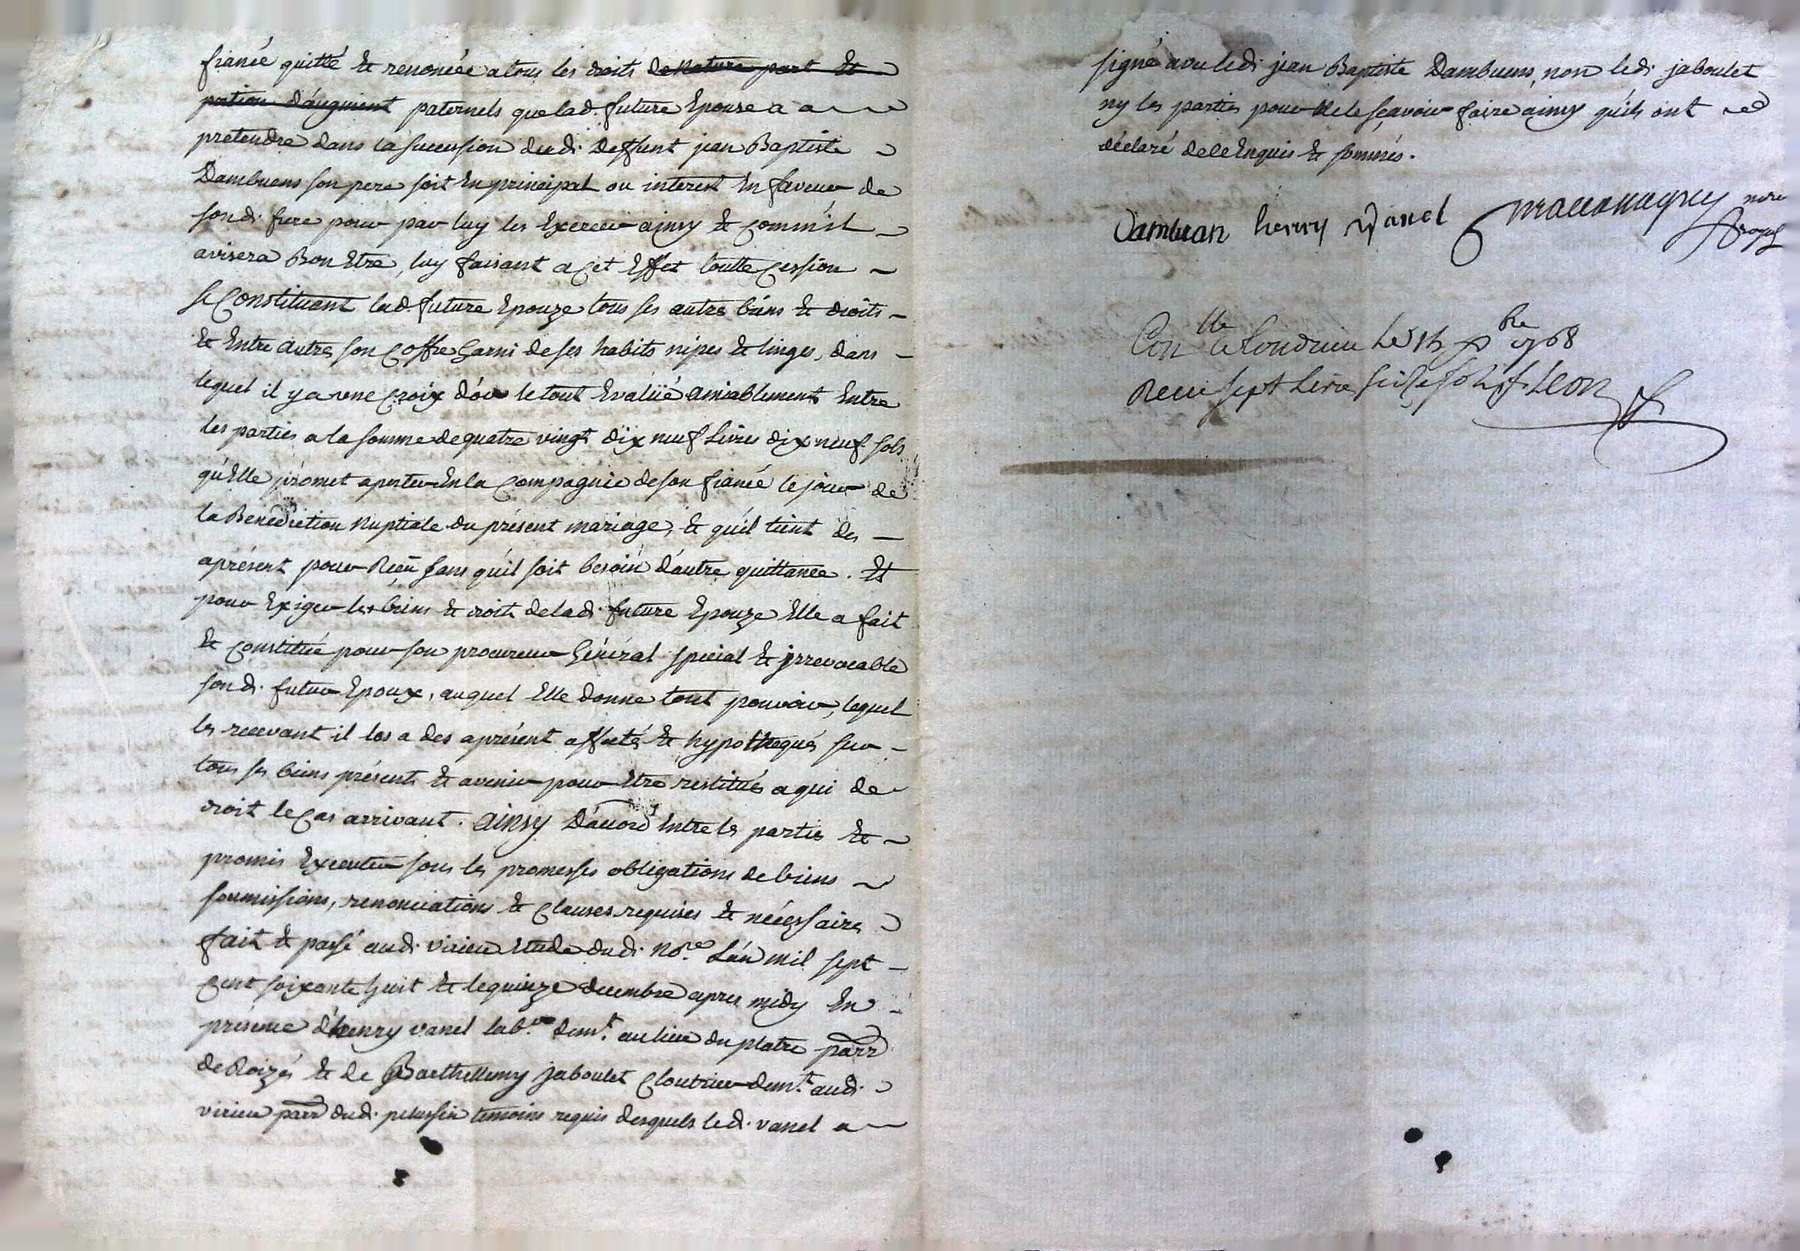 fiancé quitté Et renoncée a tous les droits de nature part Et
portion d'augment paternels que lad. future Epouse a a
pretendre dans la sucession dud. deffunt jean Baptiste
Dambuens son pere soit En principal ou interest En faveur de
sond. frere pour par luy les Exercer ainsy Et comm'il
avisera Bon Etre, luy faisant a cet Effet toutte cession
se Constituant lad. future Epouze tous ses autres biens Et droits
Et Entre autres son coffre Garni de ses habits nipes Et linges, dans
lequel il y a une croix d'or le tout Evalüé amiablement Entre
les parties a la somme de quatre vingt dix neuf livres dix neuf sols
qu'Elle promet aporter En la Compagnie de son fiancé le jour de
la Benediction Nuptiale du présent mariage, Et qu'il tient des
aprésent pour Reçu sans qu'il soit besoin d'autre quittance. Et
pour Exiger les biens Et droits de lad. future Epouze Elle a fait
Et constitué pour son procureur Général spécial Et jrrevocable
sond. futur Epoux, auquel Elle donne tout pouvoir, lequel
les recevant il les a des aprésent affectés Et hypothequés sur
tous ses biens présents Et avenir pour Etre restitués a qui de
droit le cas arrivant. ainsy D'accord Entre les parties Et
promis Executer sous les promesses obligations de biens
soumissions, renonciations Et clauses requises Et nécessaires
fait Et passé aud. virieu Etude dud. no.re L'an mil sept
cent soixante huit Et le quinze decembre apres midy En
présence d'henry vanel lab.r dem.t au lieu du platre parr
de Roizés Et de Barthellemy jaboulet cloutier dem.t aud.
virieu parr dud. pelussin temoins requis desquels led. vanel a
signé avec led. jean Baptiste Dambuens, non led. jaboulet
ny les parties pour ne le sçavoir faire ainsy qu'ils ont
déclaré de ce Enquis Et sommés.
Dambuan henry Vanel nore
royal
Con.lle a Condrieu le 15 Xbre 1768
Receu sept livres seize sols